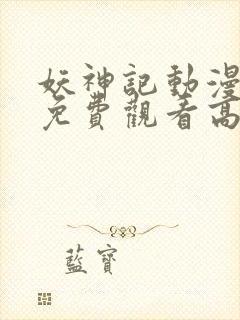 妖神記動漫
免費觀看高
藍寶